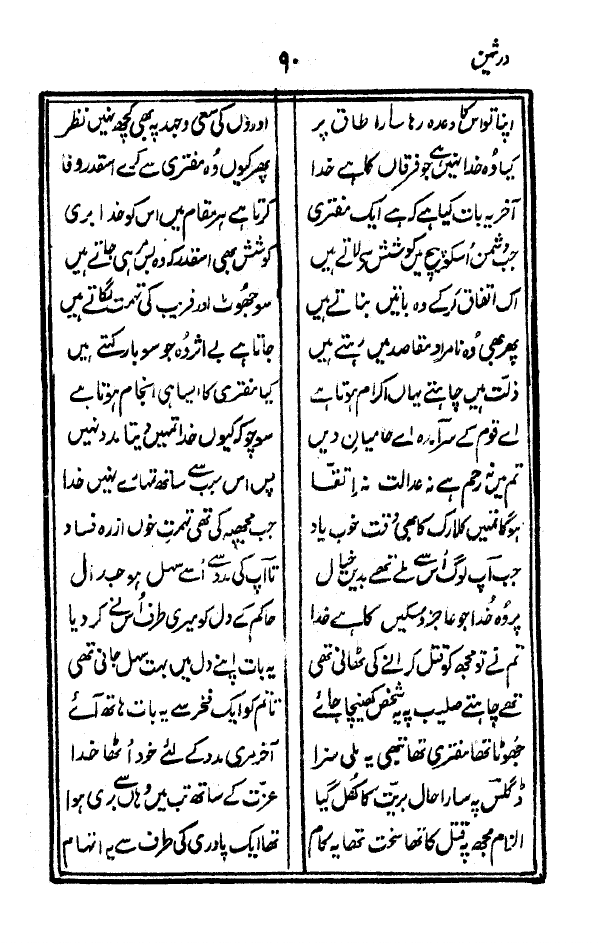 درثمین
۹۰
اپنا تو اس کا وعدہ رہا سارا طاق پر اوروں کی سعی و جہد پہ بھی کچھ نہیں نظر
کیا وُہ خدا نہیں ہے جو فرقاں کا ہے خدا پھر کیوں وُہ مفتری سے کرے اسقدر وفا
آخر یہ بات کیا ہے کہ ہے ایک مفتری کرتا ہے ہر مقام میں اس کو خدا بری
جب دشمن اُسکو بیچ میں کوشش سے لاتے ہیں کوشش بھی اسقدر کہ وہ بس مر ہی جاتے ہیں
اک اتفاق کر کے وہ باتیں بناتے ہیں سو جھوٹ اور فریب کی تہمت لگاتے ہیں
پھر بھی وُہ نامراد مقاصد میں رہتے ہیں جاتا ہے بے اثر وُہ جو سو بار کہتے ہیں
ذلّت ہیں چاہتے یہاں اکرام ہوتا ہے کیا مفتری کا ایسا ہی انجام ہوتا ہے
اے قوم کے سرآمدہ اے حامیانِ دیں سوچو کہ کیوں خدا تمہیں دیتا مدد نہیں
تم میں نہ رحم ہے نہ عدالت نہ اِتقا پس اس سبب سے ساتھ تمہارے نہیں خدا
ہوگا تمہیں کلارک کا بھی وقت خوب یاد جب مجھ پہ کی تھی تہمتِ خوں ازرہ فساد
جب آپ لوگ اُس سے ملے تھے بدیں خیال تا آپ کی مدد سے اُسے سہل ہو جدال
پر وُہ خُدا جو عاجز و مسکیں کا ہے خدا حاکم کے دل کو میری طرف اُس نے کر دیا
تم نے تو مجھ کو قتل کرانے کی ٹھانی تھی یہ بات اپنے دل میں بہت سہل جانی تھی
تھے چاہتے صلیب پہ یہ شخص کھینچا جائے تا تم کو ایک فخر سے یہ بات ہاتھ آئے
جھوٹا تھا مفتری تھا تبھی یہ ملی سزا آخر مری مدد کے لئے خود اُٹھا خدا
ڈگلس پہ سارا حال بریّت کا کُھل گیا عزّت کے ساتھ تب میں وہاں سے بری ہوا
الزام مجھ پہ قتل کا تھا سخت تھا یہ کام تھا ایک پادری کی طرف سے یہ اتہام